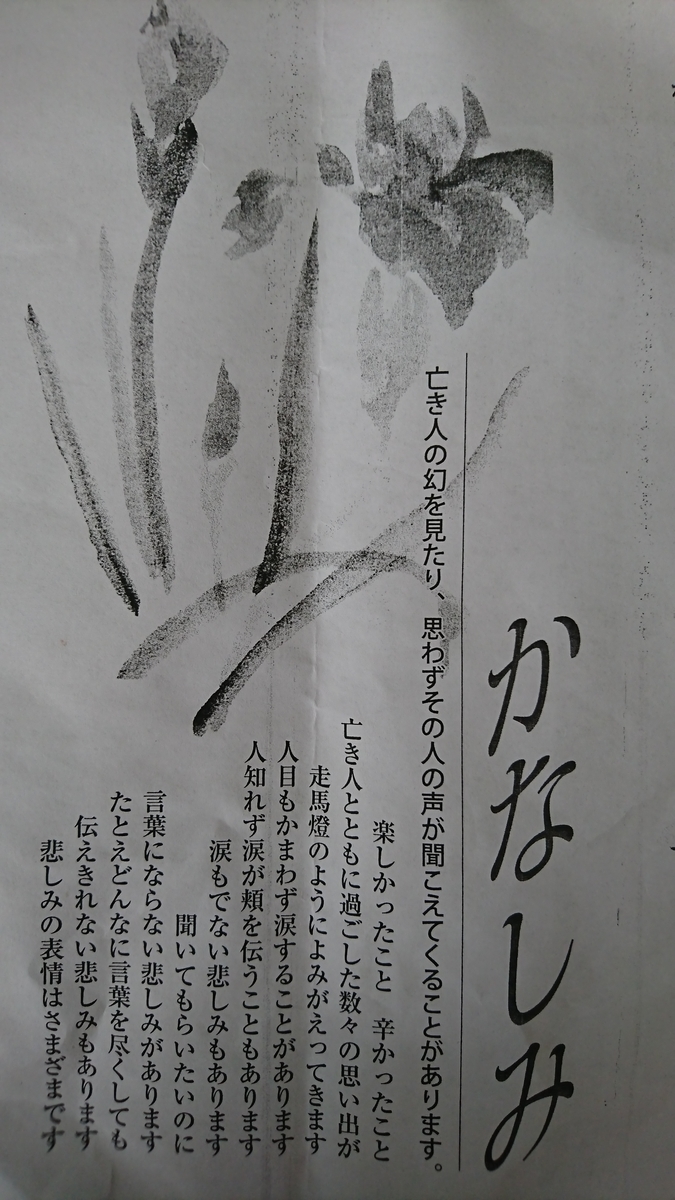 かなしみ
亡き人の幻を見たり、思わずその人の声が聞こえてくることがあります。
楽しかったこと　辛かったこと
亡き人とともに過ごした数々の思い出が
走馬燈のようによみがえってきます
人目もかまわず涙することがあります
人知れず涙が頬を伝うこともあります
涙もでない悲しみもあります
聞いてもらいたいのに
言葉にならない悲しみがあります
たとえどんなに言葉を尽くしても
伝えきれない悲しみもあります
悲しみの表情はさまざまです